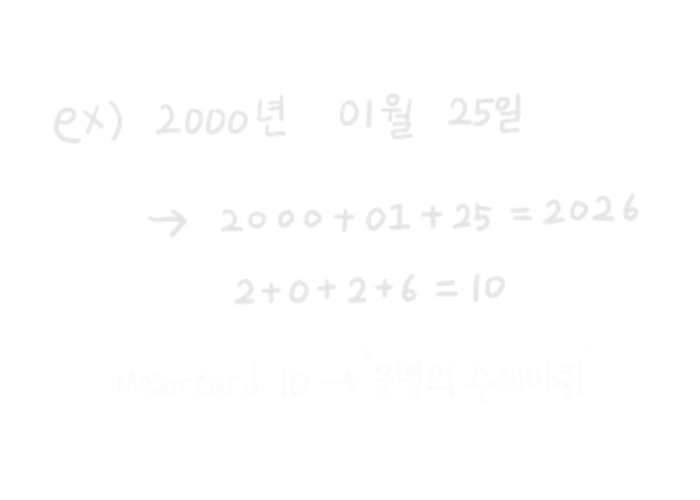 ex) 2000년 01월 25일
→ 2000+01+25 = 2026
2+0+2+6 = 10
Majorcard 10 → '운명의 수레바퀴'